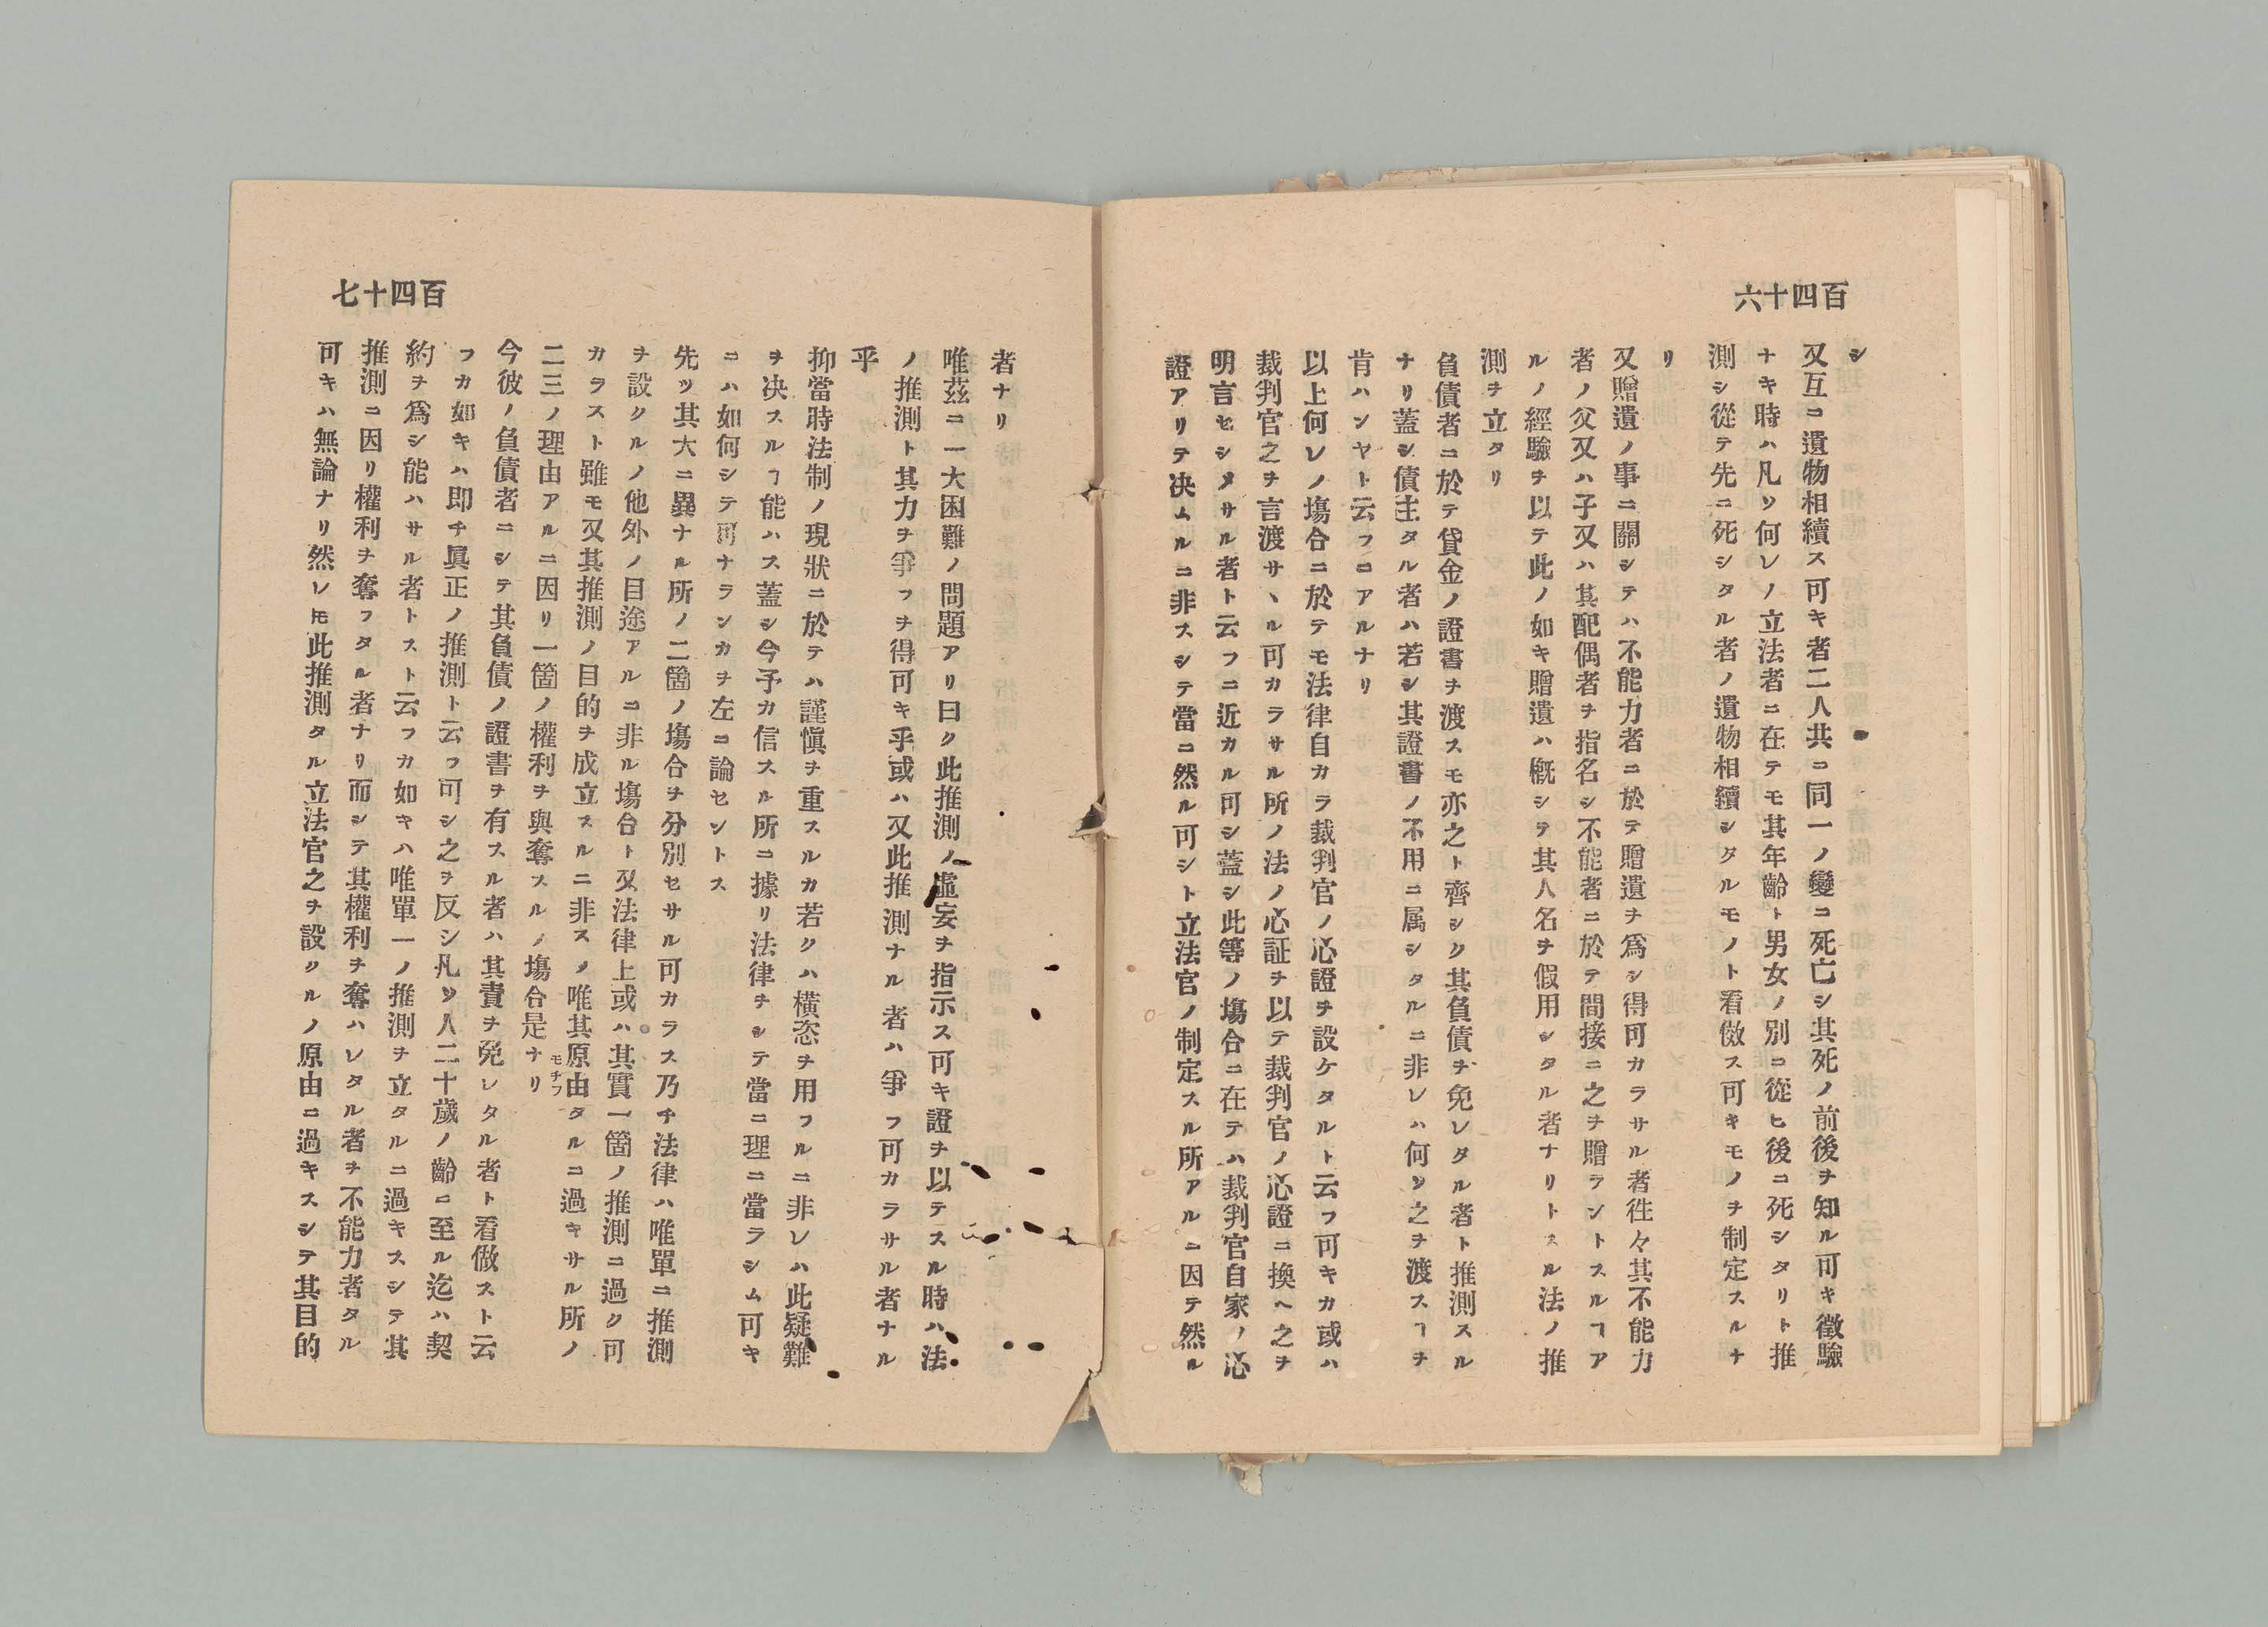 百四十六
シ
又互ニ遺物相續ス可キ者二人共ニ同一ノ變ニ死亡シ其死ノ前後ヲ知ル可キ徴驗
ナキ時ハ凡ソ何レノ立法者ニ在テモ其年齡ト男女ノ別ニ從ヒ後ニ死シタリト推
測シ從テ先ニ死シタル者ノ遺物相續シタルモノト看做ス可キモノヲ制定スルナ
リ
又贈遺ノ事ニ關シテハ不能力者ニ於テ贈遺ヲ爲シ得可カラサル者徃々其不能力
者ノ父又ハ子又ハ其配偶者ヲ指名シ不能者ニ於テ間接ニ之ヲ贈ラントスルヿア
ルノ經驗ヲ以テ此ノ如キ贈遺ハ概シテ其人名ヲ假用シタル者ナリトスル法ノ推
測ヲ立タリ
負債者ニ於テ貸金ノ證書ヲ渡スモ亦之ト齊シク其負債ヲ免レタル者ト推測スル
ナリ蓋シ債主タル者ハ若シ其證書ノ不用ニ属シタルニ非レハ何ソ之ヲ渡スヿヲ
肯ハンヤト云フコアルナリ
以上何レノ塲合ニ於テモ法律自カラ裁判官ノ心證ヲ設ケタルト云フ可キカ或ハ
裁判官之ヲ言渡サヽル可カラサル所ノ法ノ心証ヲ以テ裁判官ノ心證ニ換ヘ之ヲ
明言セシメサル者ト云フニ近カル可シ蓋シ此等ノ塲合ニ在テハ裁判官自家ノ心
證アリテ决ムルニ非スシテ當ニ然ル可シト立法官ノ制定スル所アルニ因テ然ル
百四十七
者ナリ
唯茲ニ一大困難ノ問題アリ曰ク此推測ノ虛妄ヲ指示ス可キ證ヲ以テスル時ハ法
ノ推測ト其力ヲ爭フヲ得可キ乎或ハ又此推測ナル者ハ爭フ可カラサル者ナル
乎
抑當時法制ノ現狀ニ於テハ謹愼ヲ重スルカ若クハ橫恣ヲ用フルニ非レハ此疑難
ヲ决スルヿ能ハス蓋シ今予カ信スル所ニ據リ法律ヲシテ當ニ理ニ當ラシム可キ
ニハ如何シテ可ナランカヲ左ニ論セントス
先ツ其大ニ異ナル所ノ二箇ノ塲合ヲ分別セサル可カラス乃チ法律ハ唯單ニ推測
ヲ設クルノ他外ノ目途アルニ非ル塲合ト又法律上或ハ其實一箇ノ推測ニ過ク可
カラスト雖モ又其推測ノ目的ヲ成立スルニ非スノ唯其原由タルニ過キサル所ノ
モチフ
二三ノ理由アルニ因リ一箇ノ權利ヲ與奪スルノ塲合是ナリ
今彼ノ負債者ニシテ其負債ノ證書ヲ有スル者ハ其責ヲ免レタル者ト看做スト云
フカ如キハ即チ眞正ノ推測ト云フ可シ之ヲ反シ凡ソ人二十歲ノ齡ニ至ル迄ハ契
約ヲ爲シ能ハサル者トスト云フカ如キハ唯單一ノ推測ヲ立タルニ過キスシテ其
推測ニ因リ權利ヲ奪フタル者ナリ而シテ其權利ヲ奪ハレタル者ヲ不能力者タル
可キハ無論ナリ然レ𪜈此推測タル立法官之ヲ設クルノ原由ニ過キスシテ其目的